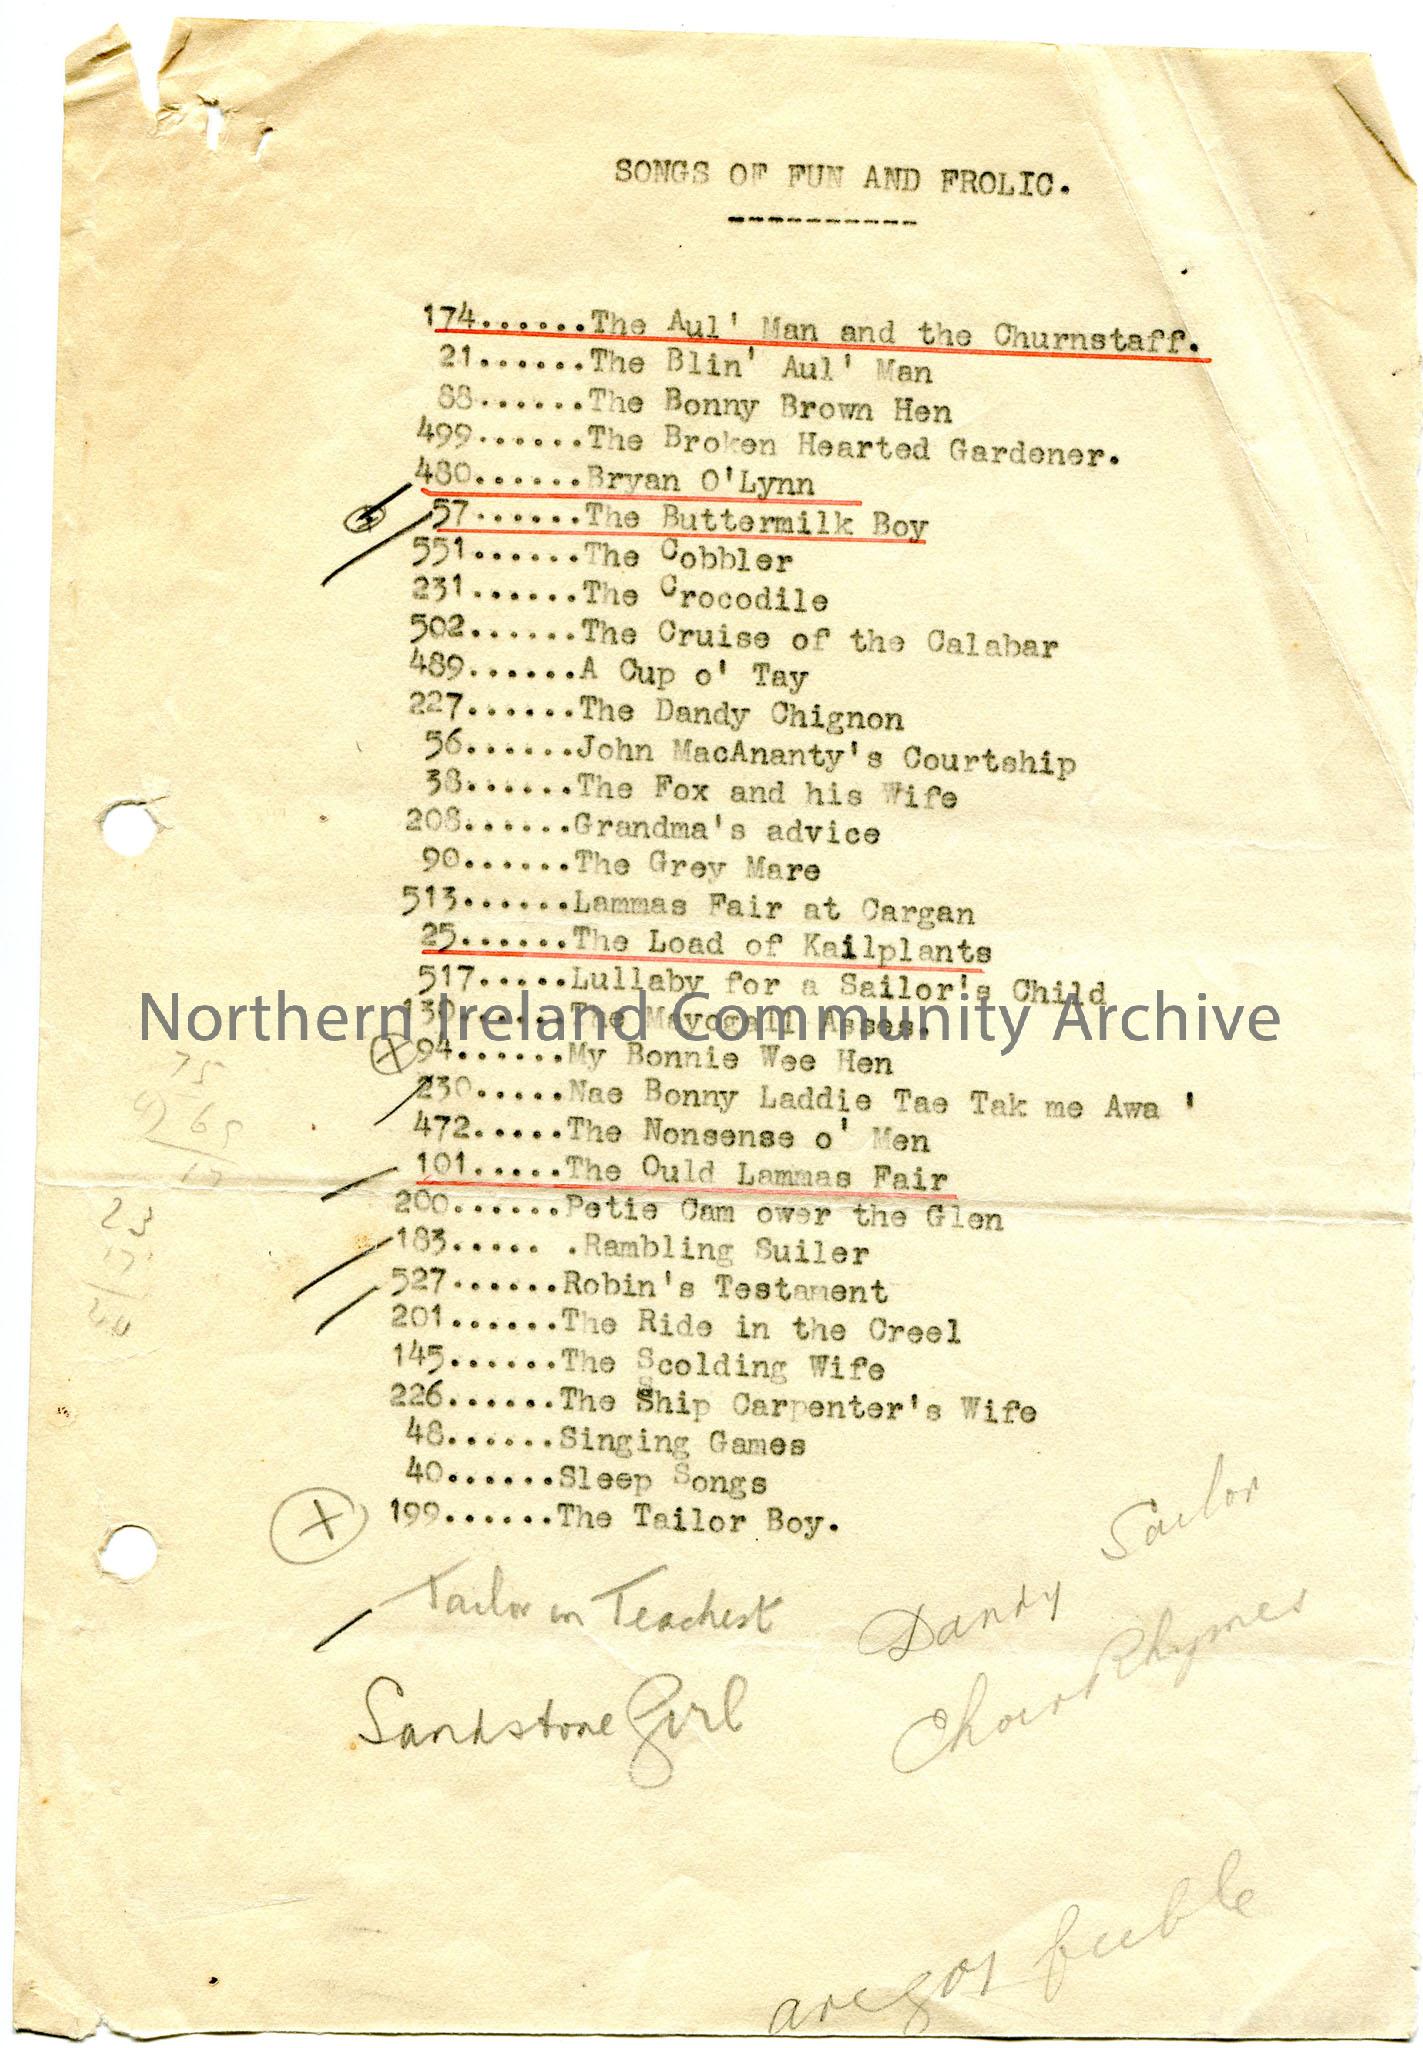 SONGS OF FUN AND FROLIC.
----------
174......The Aul' Man and the Churnstaff.
21......The Blin' Aul' Man
88......The Bonny Brown Hen
499......The Broken Hearted Gardener.
480......Bryan O'Lynn
57......The Buttermilk Boy
551......The Cobbler
231......The Crocodile
502......The Cruise of the Calabar
489......A Cup o' Tay
227......The Dandy Chignon
56......John MacAnanty's Courtship
38......The Fox and his Wife
208......Grandma's advice
90......The Grey Mare
513......Lammas Fair at Cargan
25......The Load of Kailplants
517.....Lullaby for a Sailor's Child
Northern Ireland Community Archive
130......The Mayogall Asses.
94......My Bonnie Wee Hen
230.....Nae Bonny Laddie Tae Tak me Awa '
472.....The Nonsense o' Men
101.....The Ould Lammas Fair
200......Petie Cam ower the Glen
183..... .Rambling Suiler
527......Robin's Testament
201......The Ride in the Creel
145......The Scolding Wife
226......The Ship Carpenter's Wife
48......Singing Games
40......Sleep Songs
199......The Tailor Boy.
75
65
17
23
17
Tailor in Teachest
Dandy Sailor
Sandstone Girl
Choir Rhymes